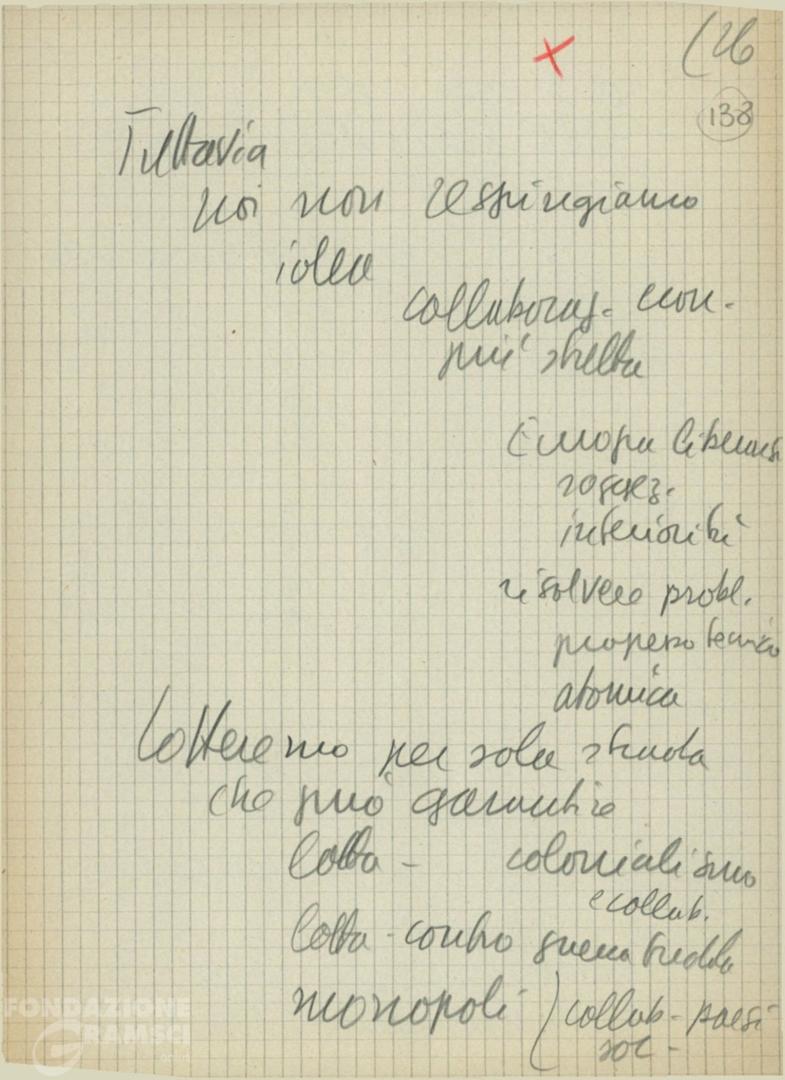 (26
138
Tuttavia
noi non respingiamo
idea
collaboraz. econ.
più stretta
Europa liberarsi
soggez.
inferiorità
risolvere probl.
progresso tecnico
atomica
Lotteremo per sola strada
che può garantire
lotta - colonialismo
e collab.
lotta - contro guerra fredda
monopoli (collab - paesi
soc -
FONDAZIONE
GRAMSCI